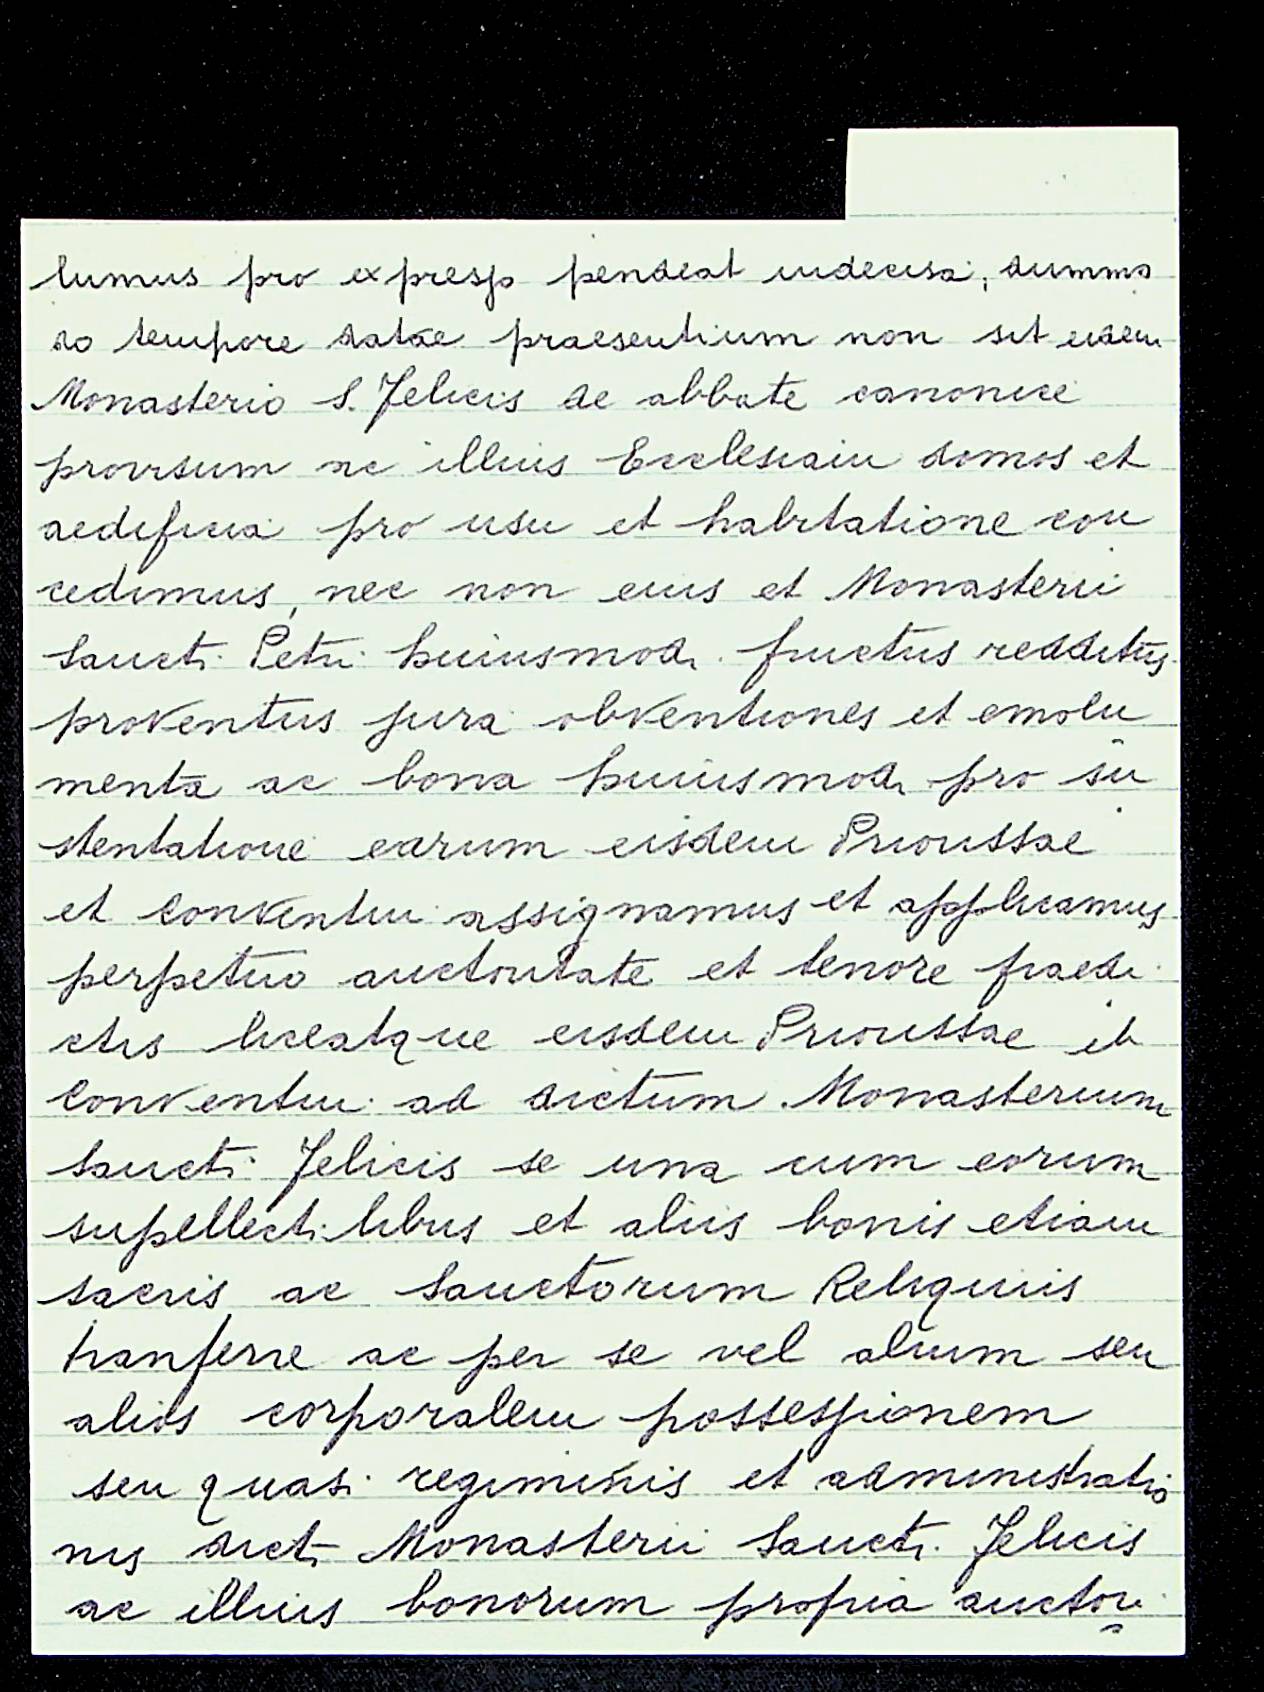 lumus pro expresso pendeat indecisa, dummo
do tempore datae praesentium non sit eidem
Monasterio S. Felicis de abbate canonice
provisum ac illius Ecclesiam domos et
aedificia pro usu et habitatione con
cedimus, nec non eius et Monasterii
Sancti Petri huiusmodi fructus redditus
proventus jura obventiones et emolu
menta ac bona huiusmodi pro su
stentatione earum eisdem Priorissae
et Conventui assignamus et applicamus
perpetuo auctoritate et tenore praedi
ctis liceatque eisdem Priorissae et
Conventui ad dictum Monasterium
Sancti Felicis se una cum eorum
supellectilibus et aliis bonis etiam
sacris ac Sanctorum Reliquiis
tranferre ac per se vel alium seu
alios corporalem possessionem
seu quasi regiminis et administratio
nis dicti Monasterii Sancti Felicis
ac illius bonorum propria auctori